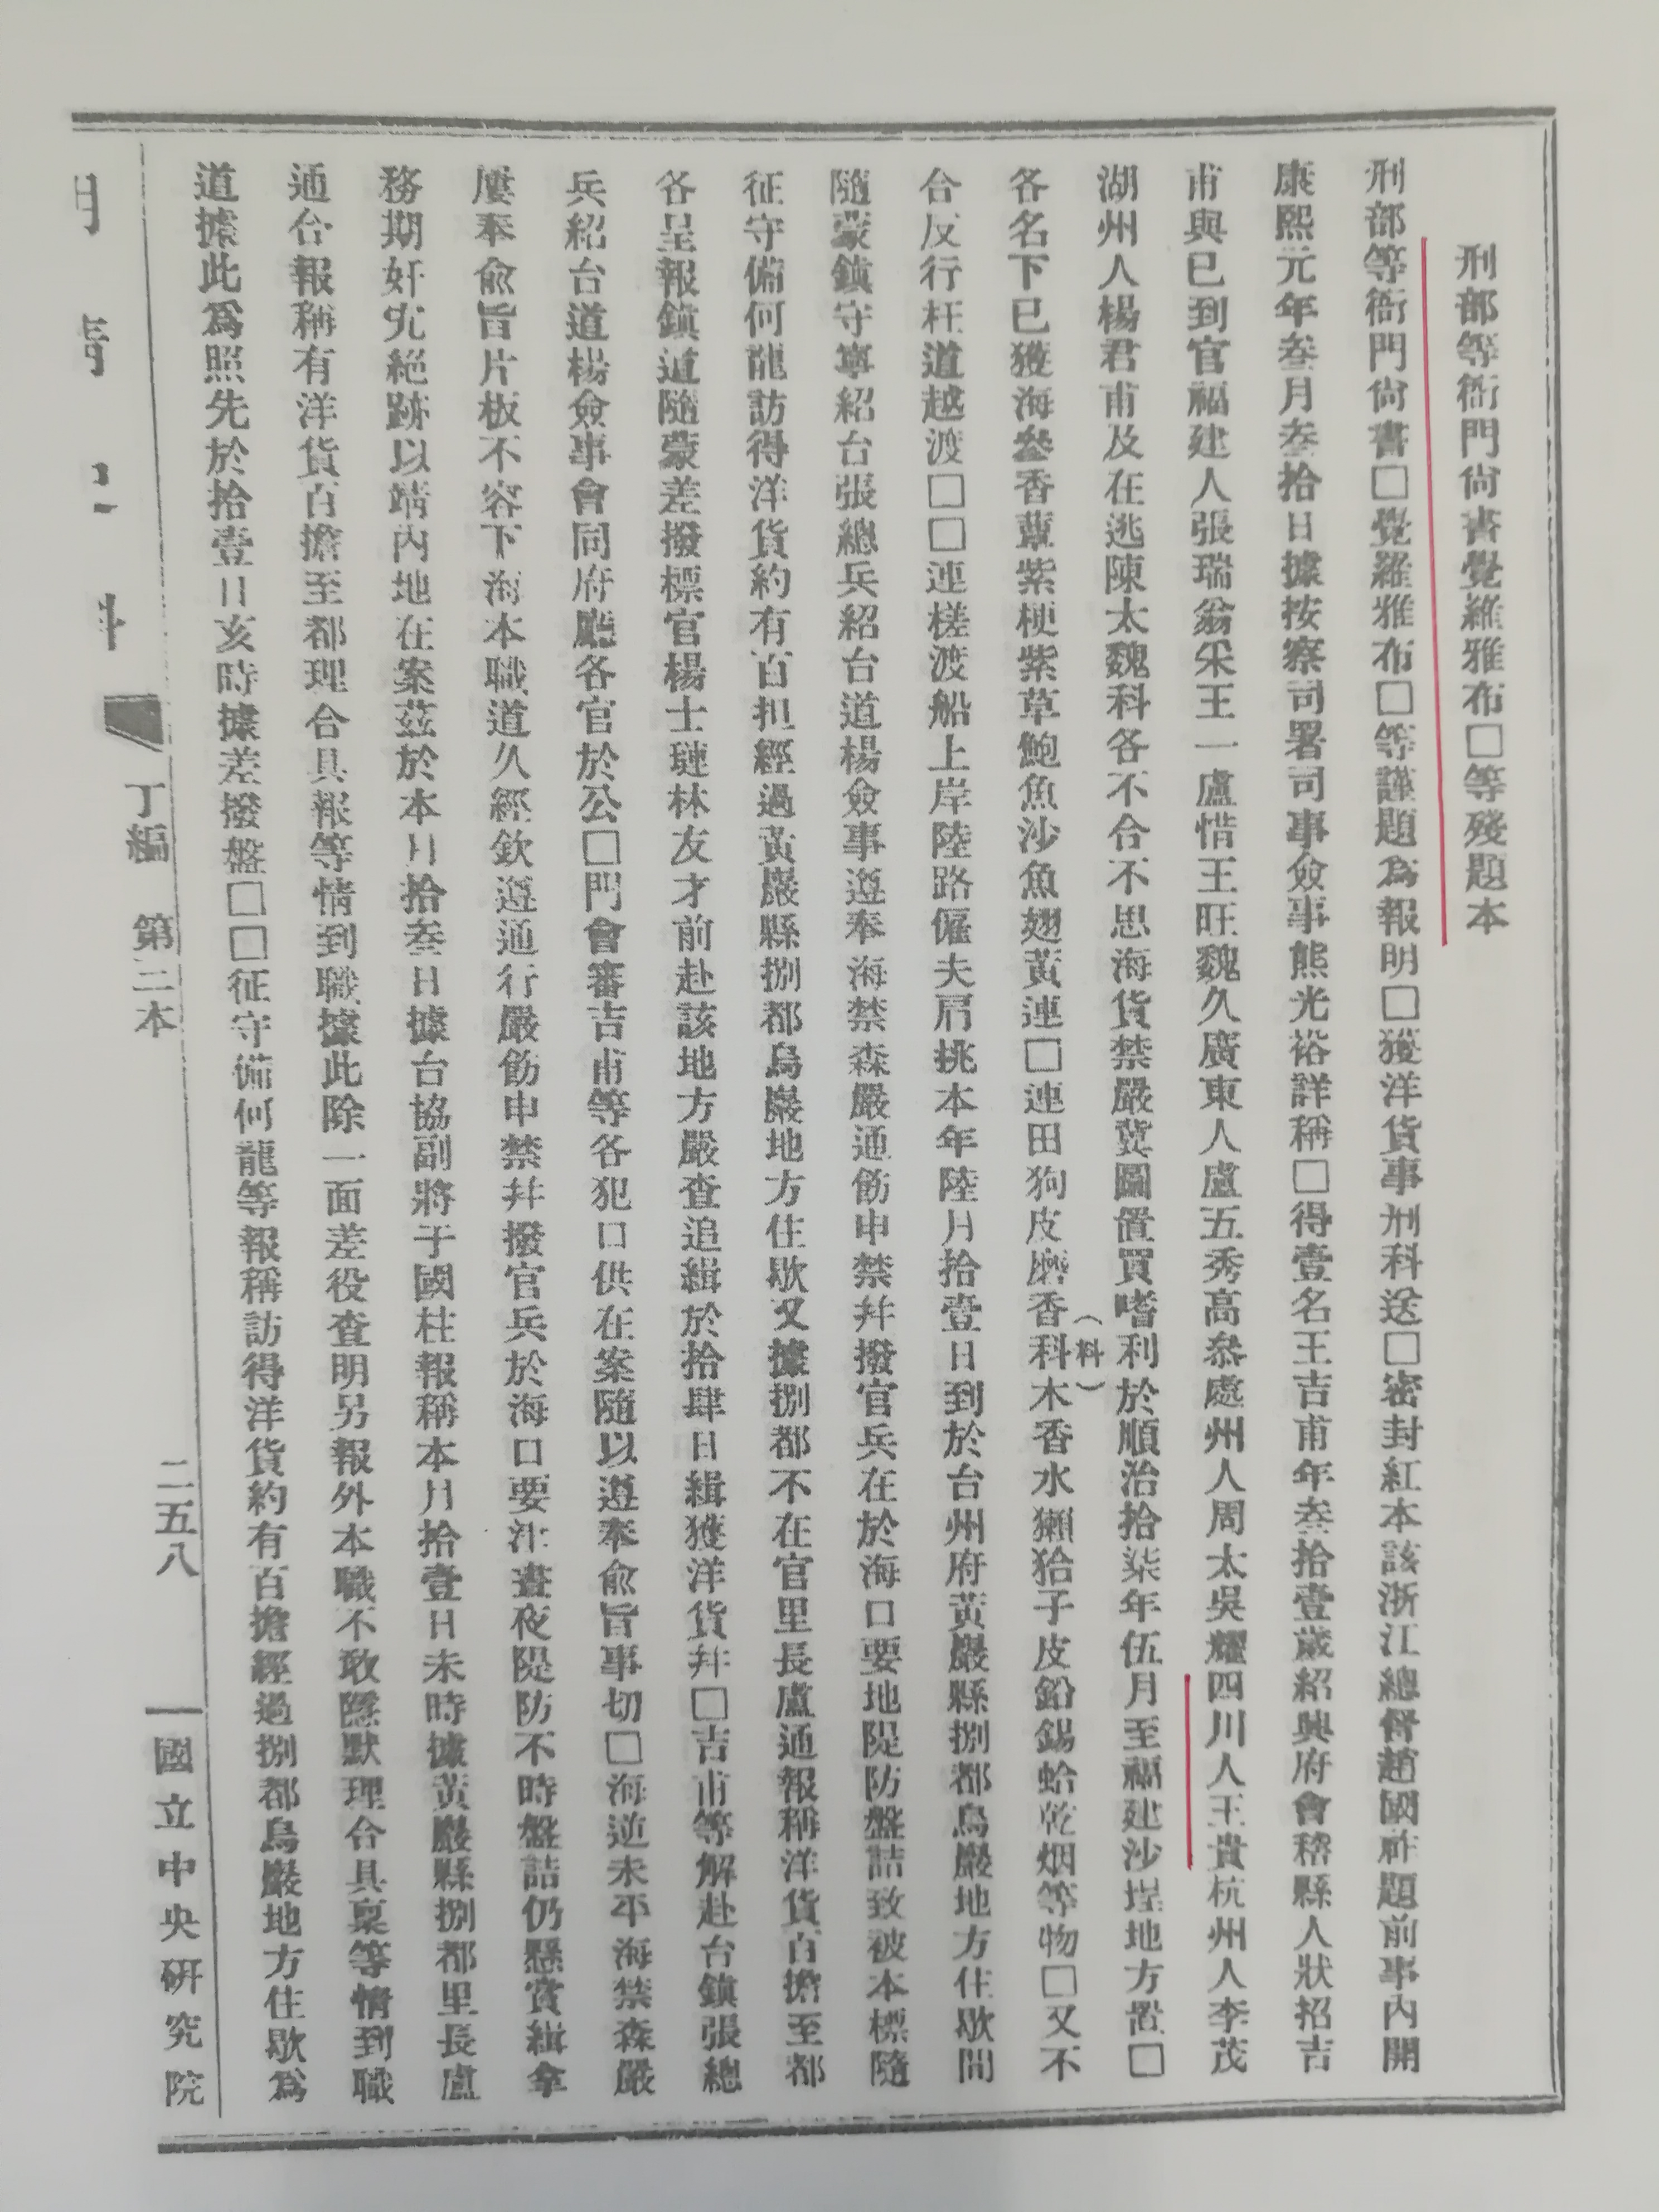 刑部等衙門尙書覺羅雅布□等殘題本
刑部等衙門尙書□覺羅雅布□等謹題爲報明□獲洋貨事刑科送□密封紅本該浙江總督趙國祚題前事內開
康熙元年叁月叁拾日據按察司署司事僉事熊光裕詳稱□得壹名王吉甫年叁拾壹歲紹興府會稽縣人狀招吉
甫與已到官福建人張瑞翁朱王一盧惜王旺魏久廣東人盧五秀高叅處州人周太吳耀四川人王貴杭州人李茂
湖州人楊君甫及在逃陳太魏科各不合不思海貨禁嚴冀圖置買嗜利於順治拾柒年伍月至福建沙埕地方置□
各名下已獲海參香蕈紫梗紫草鮑魚沙魚翅黃連□連田狗皮麝香科(料)木香水獺狢子皮鉛錫蛤乾烟等物□又不
合反行枉道越渡□□連槎渡船上岸陸路僱夫肩挑本年陸月拾壹日到於台州府黃巖縣捌都烏巖地方住歇間
隨蒙鎭守寧紹台張總兵紹台道楊僉事遵奉海禁森嚴通飭申禁幷撥官兵在於海口要地隄防盤詰致被本標隨
征守備何龍訪得洋貨約有百担經過黃巖縣捌都烏巖地方住歇又據捌都不在官里長盧通報稱洋貨百擔至都
各呈報鎭道隨蒙差撥標官楊士璉林友才前赴該地方嚴查追緝於拾肆日緝獲洋貨幷□吉甫等解赴台鎭張總
兵紹台道楊僉事會同府廳各官於公□門會審吉甫等各犯口供在案隨以遵奉俞旨事切□海逆未平海禁森嚴
屢奉俞旨片板不容下海本職道久經欽遵通行嚴飭申禁幷撥官兵於海口要汛晝夜隄防不時盤詰仍懸賞緝拿
務期奸宄絕跡以靖內地在案茲於本月拾叁日據台協副將于國柱報稱本月拾壹日未時據黃巖縣捌都里長盧
通台報稱有洋貨百擔至都理合具報等情到職據此除一面差役查明另報外本職不敢隱默理合具稟等情到職
道據此爲照先於拾壹日亥時據差撥盤□□征守備何龍等報稱訪得洋貨約有百擔經過捌都烏巖地方住歇爲
丁編 第三本 二五八 國立中央研究院